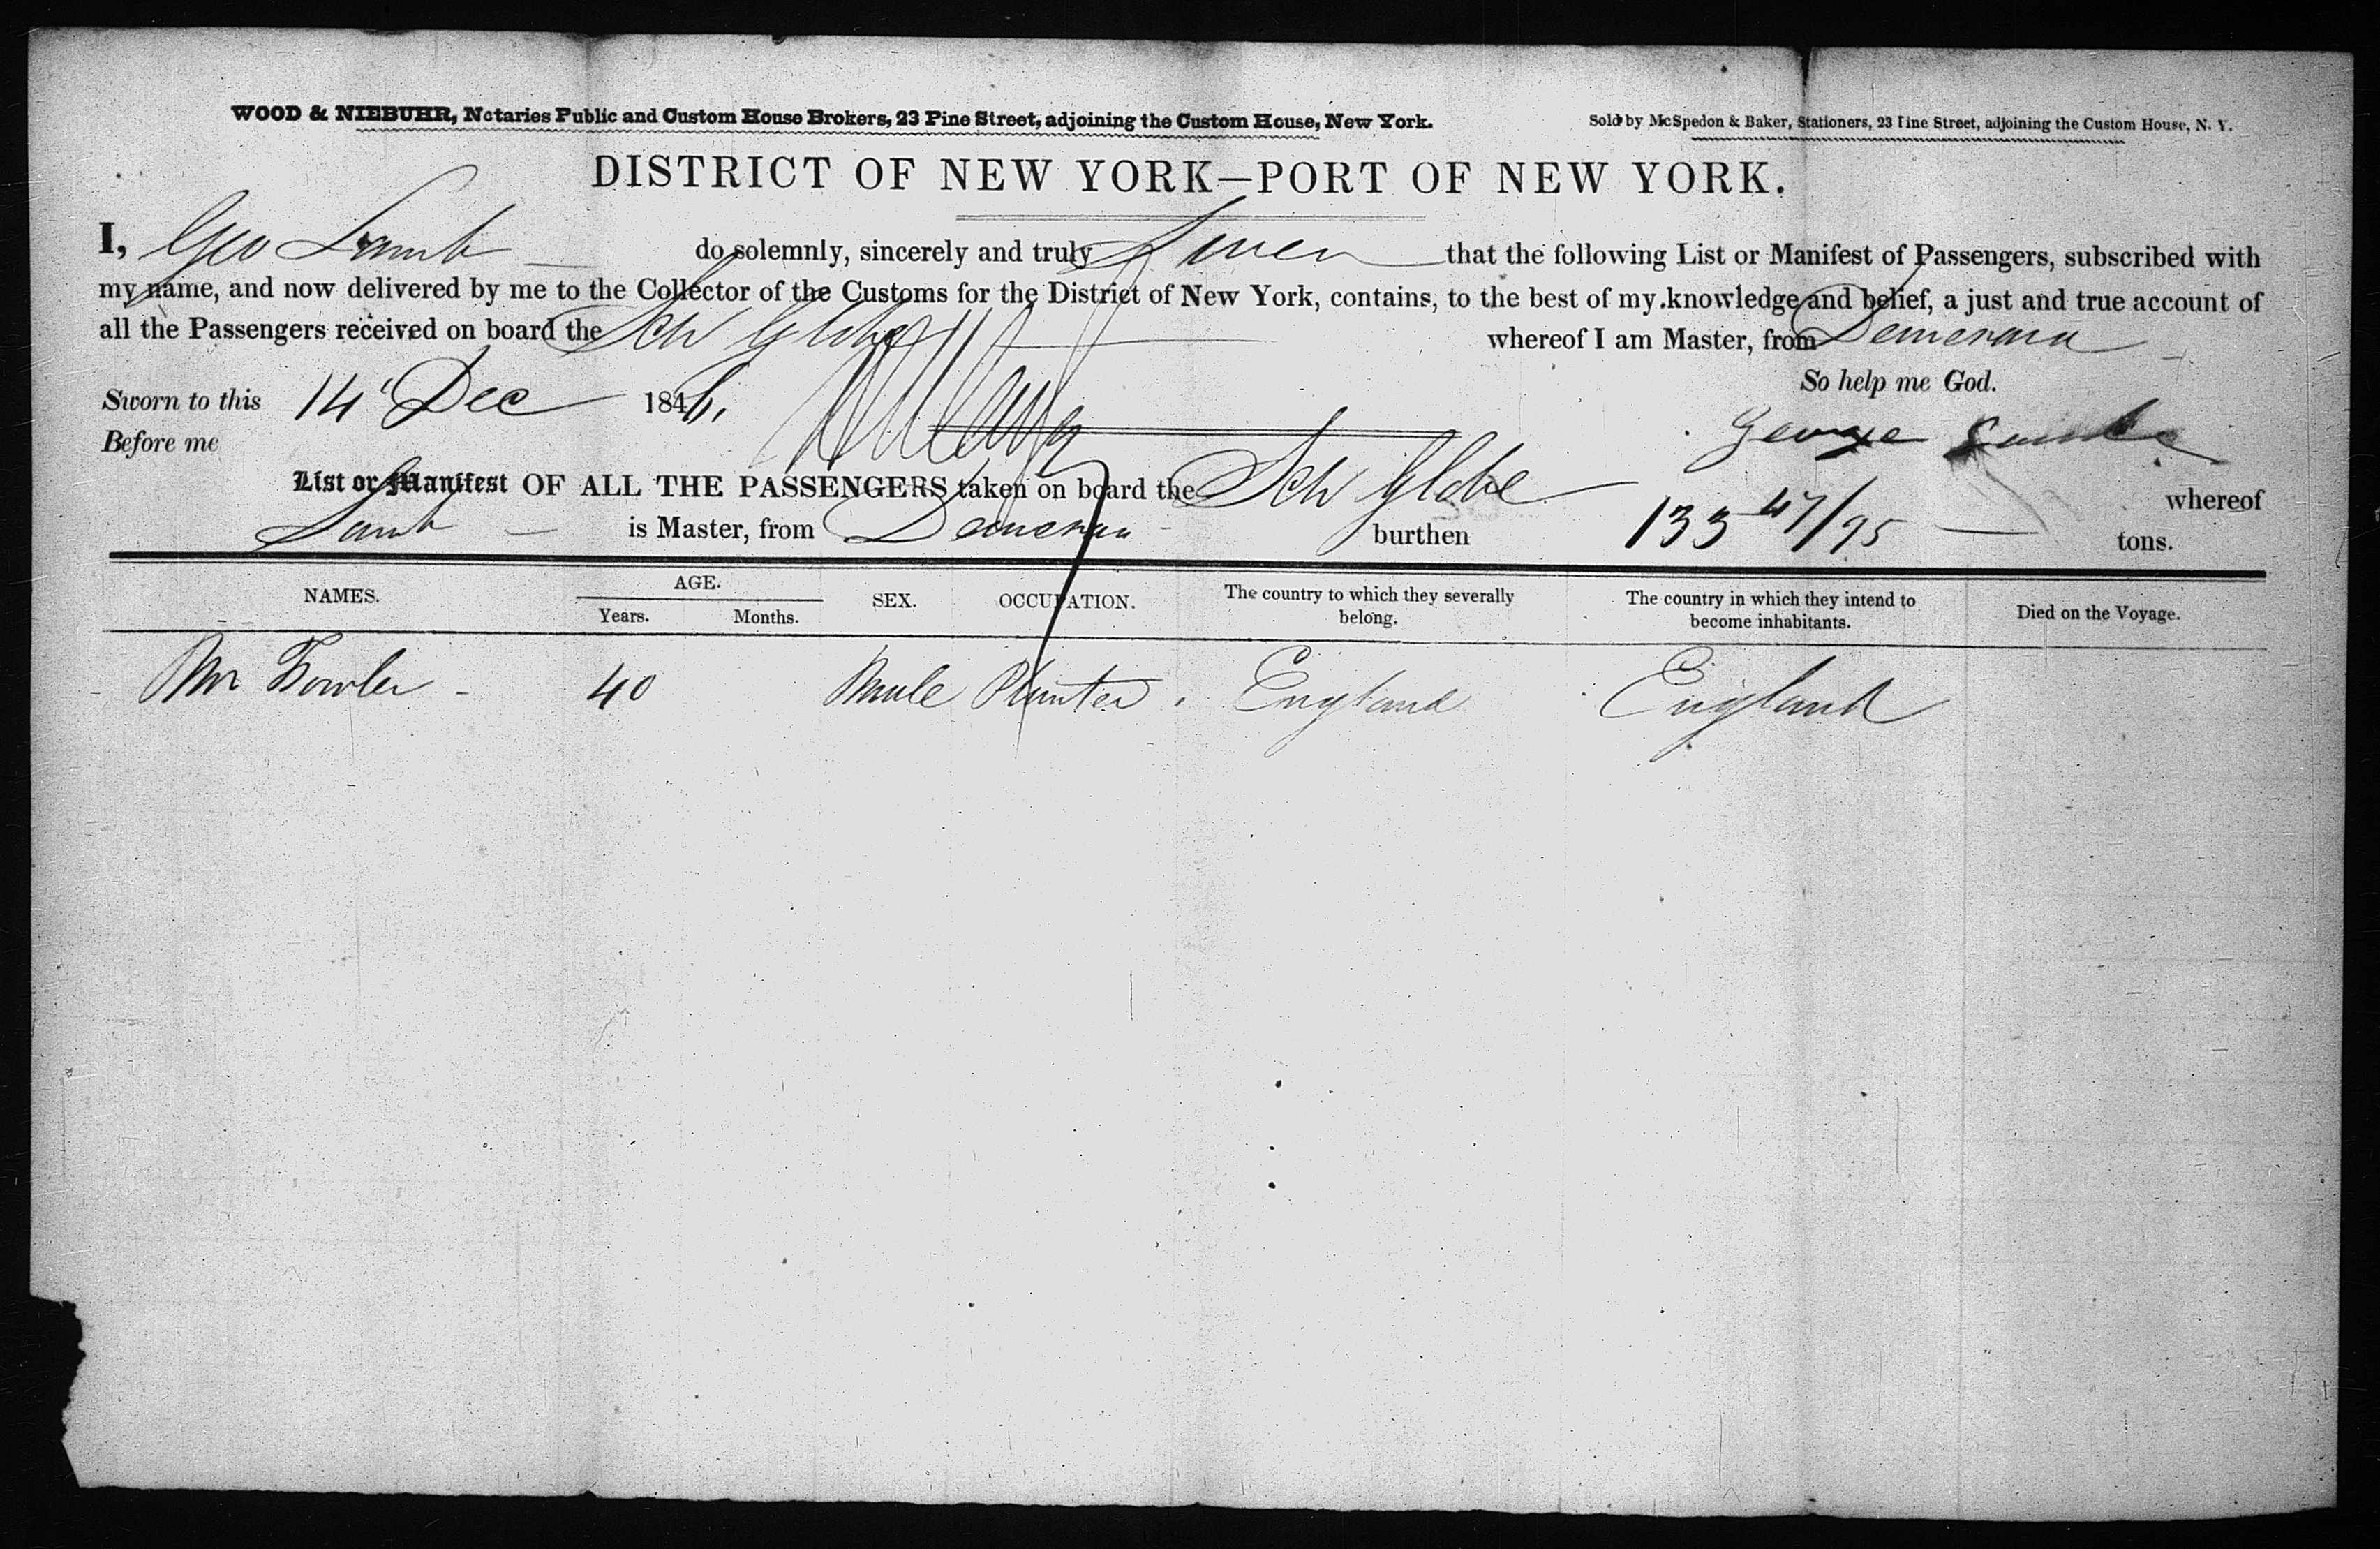 WOOD & NIEBUHR, Notaries Public and Custom House Brokers, 23 Pine Street, adjoining the Custom House, New York. Sold by McSpedon & Baker, Stationers, 23 Pine Street, adjoining the Custom House, N. Y.
DISTRICT OF NEW YORK—PORT OF NEW YORK.
I, Geo Lamb do solemnly, sincerely and truly Swear that the following List or Manifest of Passengers, subscribed with
my name, and now delivered by me to the Collector of the Customs for the District of New York, contains, to the best of my knowledge and belief, a just and true account of
all the Passengers received on board the Sch Globe whereof I am Master, from Demerara
So help me God.
Sworn to this 14 Dec 1846.
Before me George Lamb
List or Manifest OF ALL THE PASSENGERS taken on board the Sch Globe whereof
Lamb is Master, from Demerara burthen 133 47/95 tons.
NAMES. AGE. SEX. OCCUPATION. The country to which they severally belong. The country in which they intend to become inhabitants. Died on the Voyage.
Years. Months.
Mr Fowler 40 Male Planter England England